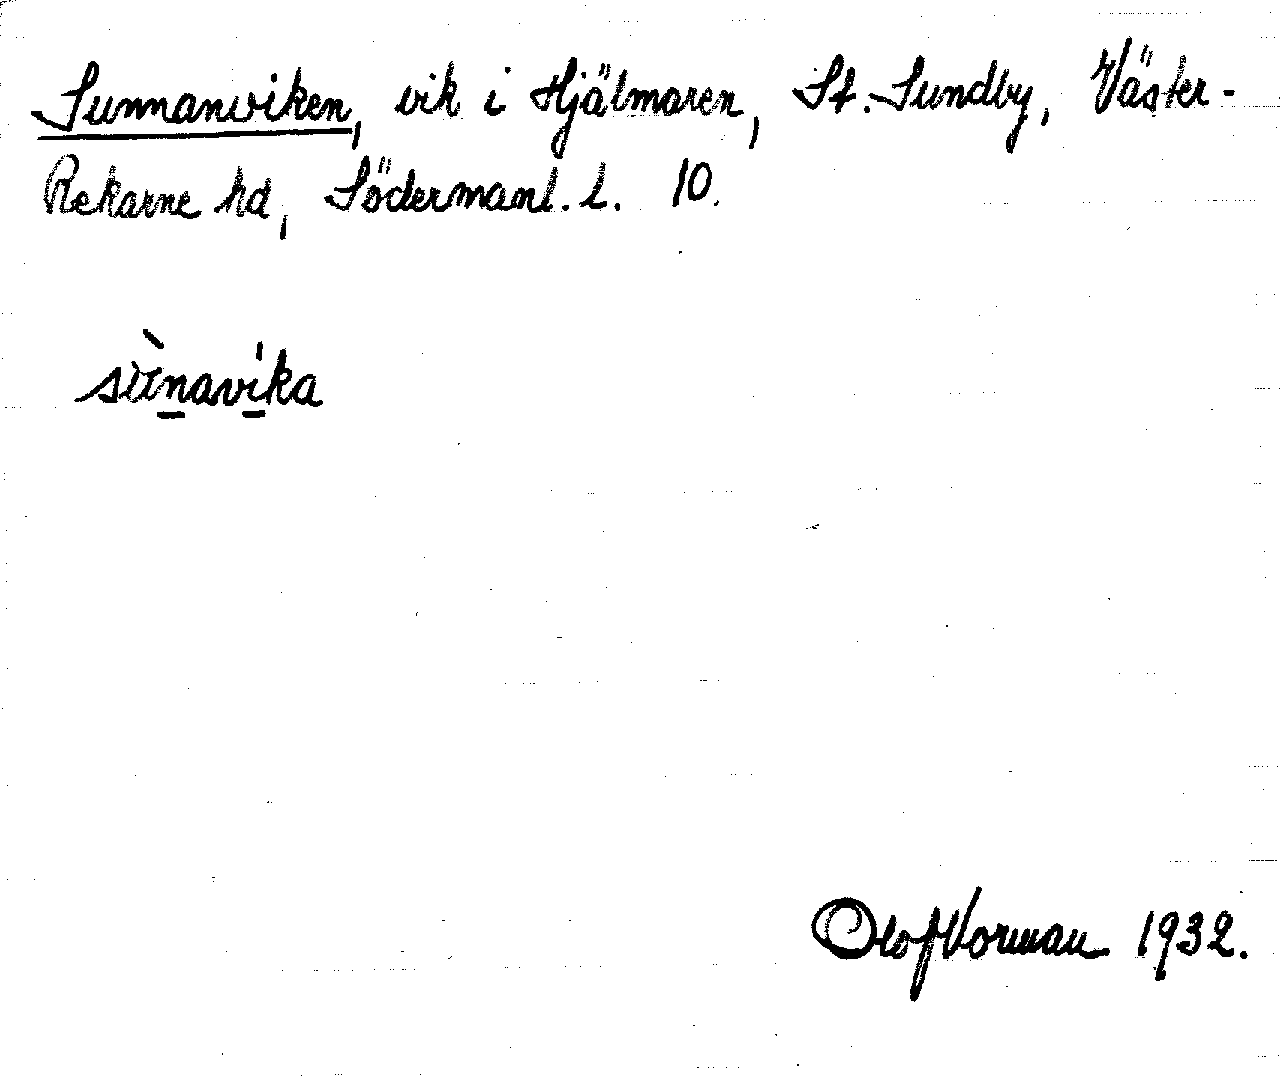 Sunnanviken, vik i Hjälmaren, St. Sundby, Väster-
Rekarne hd, Södermanl. l. 10.
sùnavika
Olof Vorman 1932.